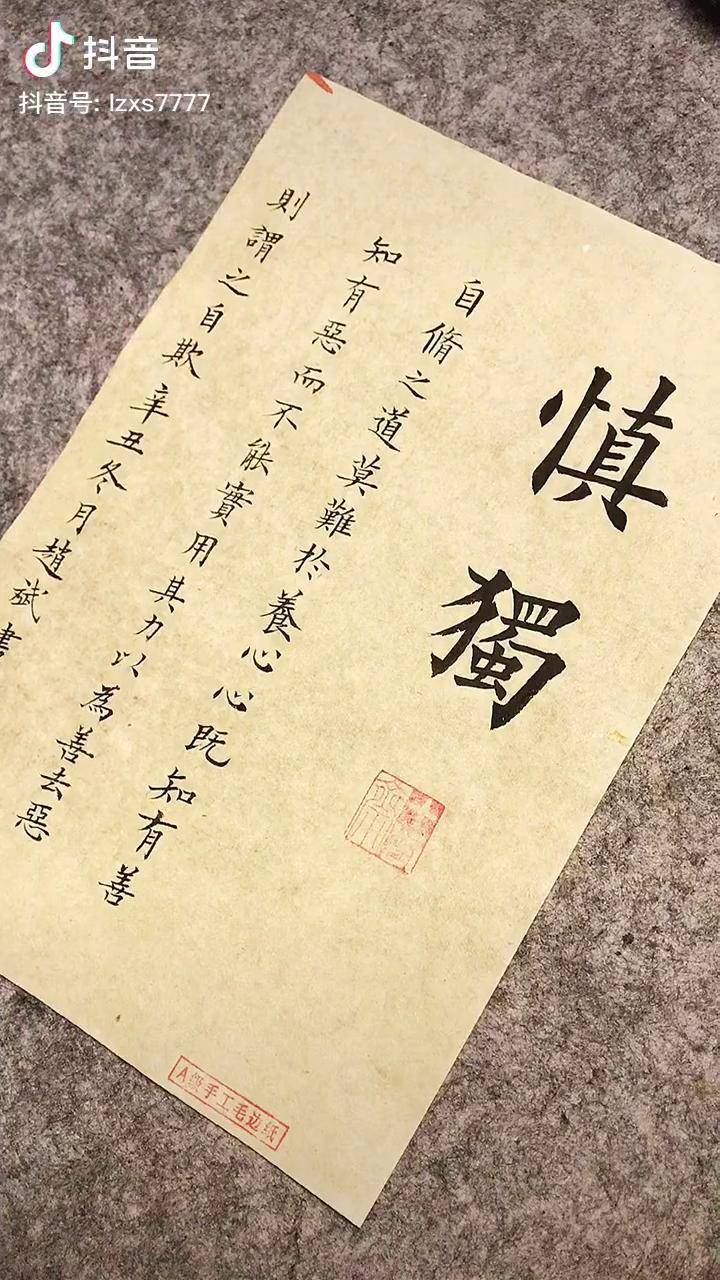 抖音
抖音号: lzxs7777
慎獨
自脩之道莫難於養心心既知有善
知有惡而不能實用其力以為善去惡
則謂之自欺辛丑冬月趙斌書
A级手工毛边纸